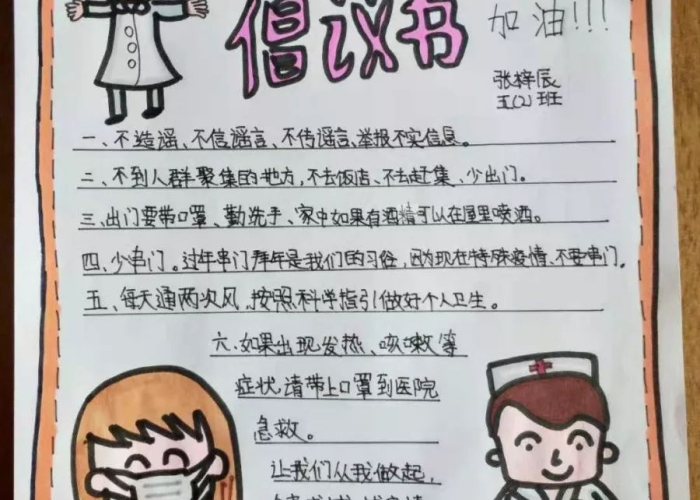 倡议书
加油!!!
张梓辰
五(2)班
一、不造谣、不信谣言、不传谣言、举报不实信息。
二、不到人群聚集的地方,不去饭店、不去赶集、少出门。
三、出门要带口罩、勤洗手、家中如果有酒精可以在屋里喷洒。
四、少串门。过年串门拜年是我们的习俗,因为现在特殊疫情、不要串门。
五、每天通两次风,按照科学指引做好个人卫生。
六、如果出现发热、咳嗽等
症状,请带上口罩到医院
急救。
让我们从我做起,